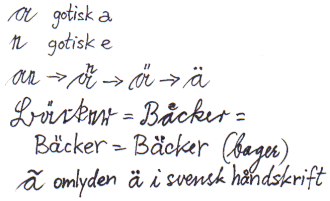 a gotisk a
n gotisk e
an → aⁿ → ä → ä
Bäcker = Bäcker =
Bäcker = Bäcker (bager)
ã omlyden ä i svensk håndskrift